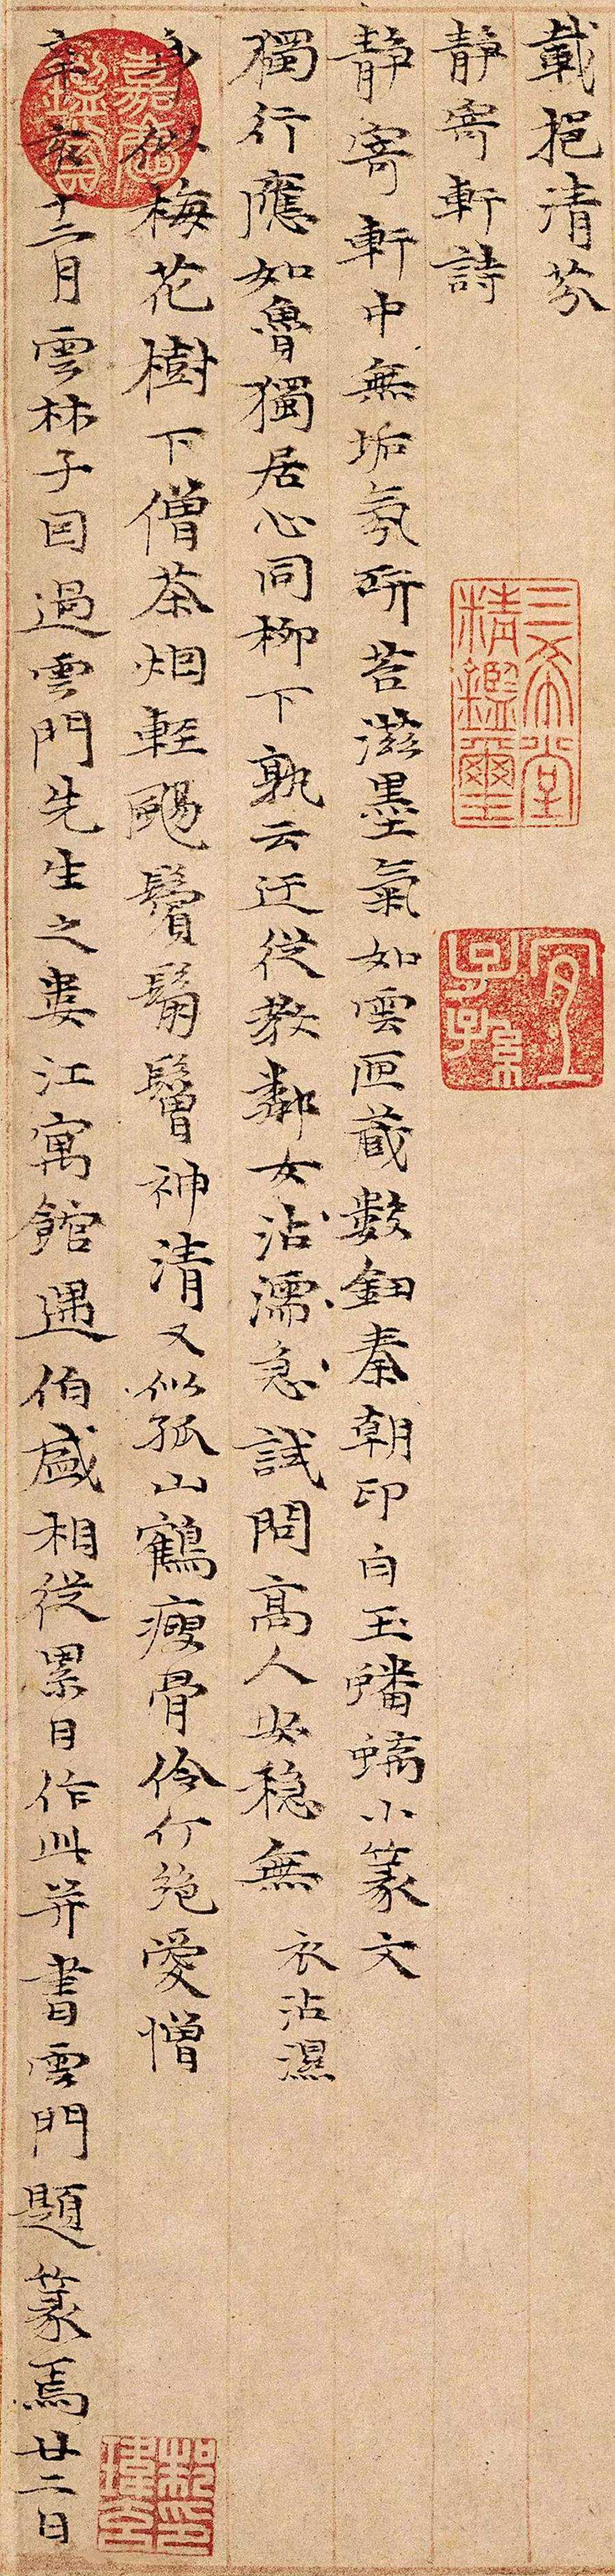 載挹清芬
静寄軒詩
静寄軒中無垢氛研苔滋墨氣如雲匣藏數鈕秦朝印白玉蟠螭小篆文
獨行應如魯獨居心同柳下孰云迂從教鄰女沾濡急試問高人安穩無
衣沾濕
身似梅花樹下僧茶烟輕颺鬢鬅鬙神清又似孤山鶴瘦骨伶仃絶愛憎
辛亥十二月雲林子因過雲門先生之婁江寓館遇伯盛相從累日作此并書雲門題篆焉廿二日
三希堂精鑑璽
宜子孫
嘉慶鑑賞